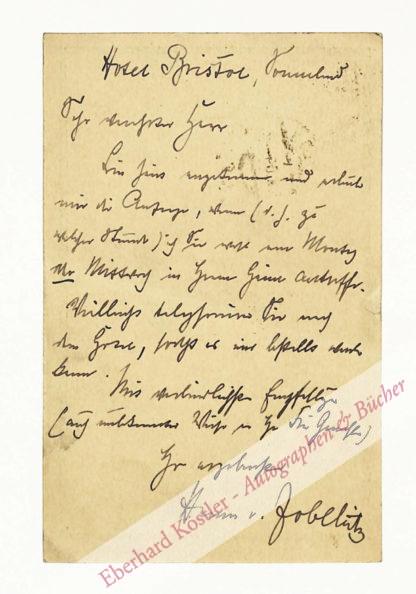 Hotel Bristol, Sonnabend
Sehr verehrter Herr
Bin hier angekommen und erlaube
mir die Anfrage, wann (d. h. zu
welcher Stunde) ich Sie wohl am Montag
oder Mittwoch in Ihrem Heim antreffe.
Vielleicht telephonieren Sie nach
dem Hotel, sodass es mir bestellt werden
kann.
Mit verbindlichsten Empfehlungen
(auch unbekannter Weise an Ihre Frau Gemahlin)
Ihr ergebenster
v. Zobeltitz
Eberhard Köstler - Autographen & Bücher